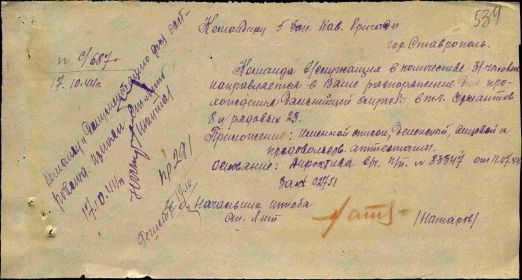 539
Командиру 5 Зап. Кав. Бригады
гор. Ставрополь.
№ с/687
17.10.44г
Команда в/служащих в количестве 31 человек
направляется в Ваше распоряжение для про-
хождения дальнейшей службы в т.ч. сержантов
8 и рядовых 23.
Приложение: именной список, денежный, вещевой и
продовольств. аттестаты.
Основание: Директива № 83347 от 11.07.44
Зам 02751
Начальник штаба
ст. л-нт
/Натаров/
Команду
принял
17.10.44г
№ 291